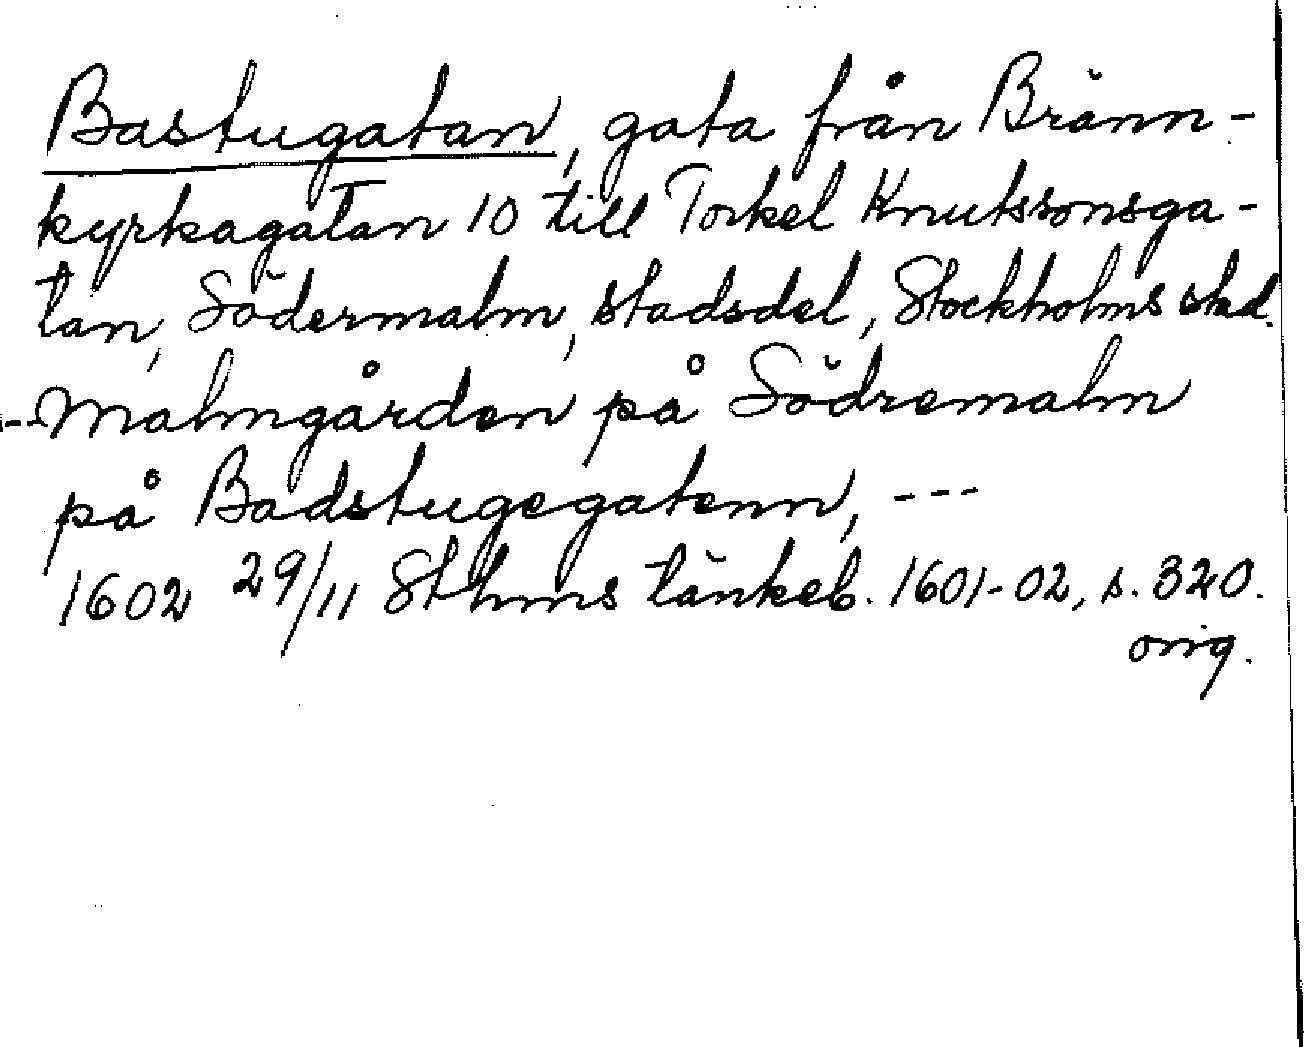 Bastugatan, gata från Bränn-
kyrkagatan 10 till Torkel Knutssonsga-
tan, Södermalm, stadsdel, Stockholms stad.
--Malmgården på Södremalm
på Badstugegatenn, ---
1602 29/11 Sthms tänkeb. 1601-02, s. 320.
orig.